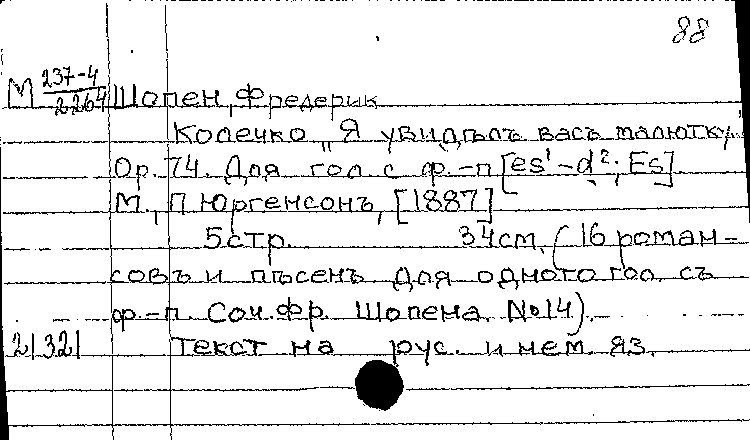 88
М 237-4
2264 Шопен, Фредерик
Колечко „Я увидѣлъ васъ малютку.
Op. 74. Для гол. с ф.-п [es¹-d²; Es].
М., П. Юргенсонъ, [1887]
5 стр. 34 см. (16 роман-
совъ и пѣсенъ для одного гол. съ
ф.-п. Соч. Фр. Шопена. №14).-
21321 Текст на рус. и нем. яз.